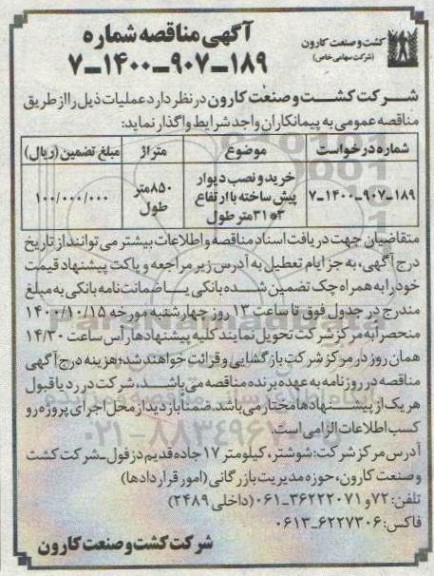 کشت و صنعت کارون
(شرکت سهامی خاص)
آگهی مناقصه شماره
۷-۱۴۰۰-۹۰۷-۱۸۹
شرکت کشت و صنعت کارون در نظر دارد عملیات ذیل را از طریق
مناقصه عمومی به پیمانکاران واجد شرایط واگذار نماید:
شماره درخواست موضوع متراژ مبلغ تضمین (ریال)
۷-۱۴۰۰-۹۰۷-۱۸۹ خرید و نصب دیوار پیش ساخته با ارتفاع ۳*۳۱ متر طول ۸۵۰ متر طول ۱۰۰/۰۰۰/۰۰۰
متقاضیان جهت دریافت اسناد مناقصه و اطلاعات بیشتر می توانند از تاریخ
درج آگهی، به جز ایام تعطیل به آدرس زیر مراجعه و پاکت پیشنهاد قیمت
خود را به همراه چک تضمین شده بانکی یا ضمانت نامه بانکی به مبلغ
مندرج در جدول فوق تا ساعت ۱۳ روز چهارشنبه مورخه ۱۴۰۰/۱۰/۱۵
منحصراً به مرکز شرکت تحویل نمایند کلیه پیشنهادها رأس ساعت ۱۴/۳۰
همان روز در مرکز شرکت بازگشایی و قرائت خواهند شد؛ هزینه درج آگهی
مناقصه در روزنامه به عهده برنده مناقصه می باشد، شرکت در رد یا قبول
هر یک از پیشنهادها مختار می باشد. ضمنا بازدید از محل اجرای پروژه و
کسب اطلاعات الزامی است.
آدرس مرکز شرکت: شوشتر، کیلومتر ۱۷ جاده قدیم دزفول_شرکت کشت
و صنعت کارون، حوزه مدیریت بازرگانی (امور قراردادها)
تلفن: ۷۲ و ۳۶۲۲۲۰۷۱-۰۶۱ (داخلی ۲۴۸۹)
فاکس: ۶۲۲۷۳۰۶-۰۶۱۳
شرکت کشت و صنعت کارون
ParsNamadData
۰۲۱-۸۸۳۴۹۶۷۰